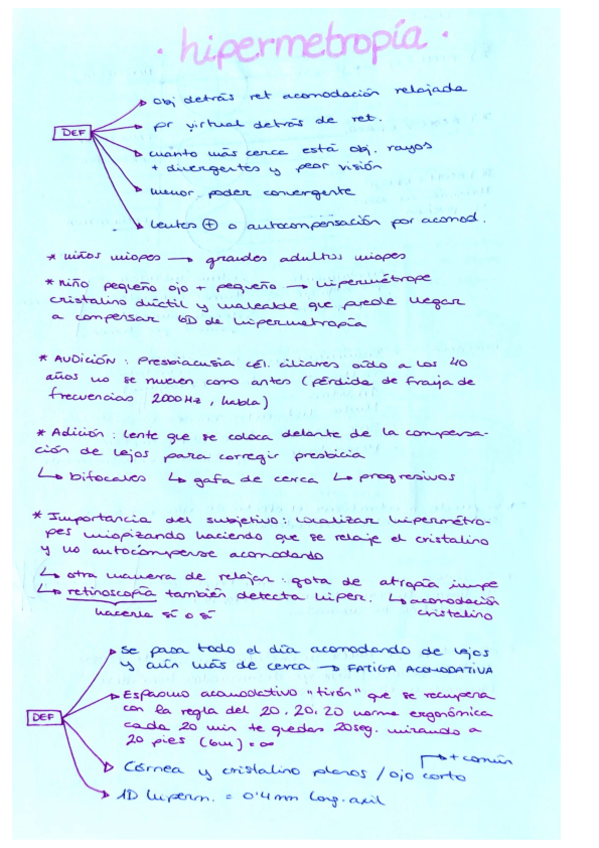 · hipermetropía ·
DEF
obj detrás ret acomodación relajada
pr virtual detrás de ret.
cuanto más cerca está obj. rayos
+ divergentes y peor visión
menor poder convergente
lentes ⊕ o autocompensación por acomod.
* niños miopes → grandes adultos miopes
* niño pequeño ojo + pequeño → hipermétrope
cristalino dúctil y maleable que puede llegar
a compensar 6D de hipermetropía
* AUDICIÓN : Presbiacusia cél. ciliares oído a los 40
años no se mueven como antes (pérdida de franja de
frecuencias 2000Hz, habla)
* Adición : lente que se coloca delante de la compensa-
ción de lejos para corregir presbicia
↳ bifocales ↳ gafa de cerca ↳ progresivos
* Importancia del subjetivo : localizar hipermétro-
pes miopizando haciendo que se relaje el cristalino
y no autocompense acomodando
↳ otra manera de relajar : gota de atropía impe
↳ retinoscopía también detecta hiper. ↳ acomodación
hacerla sí o sí cristalino
DEF
se pasa todo el día acomodando de lejos
y aún más de cerca → FATIGA ACOMODATIVA
Espasmo acomodativo "tirón" que se recupera
con la regla del 20.20.20 norma ergonómica
cada 20 min te quedas 20seg. mirando a
20 pies (6m) = ∞
+ común
Córnea y cristalino planos / ojo corto
1D hiperm. = 0'4mm long. axil